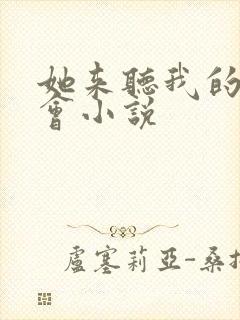 她来聽我的
會小説
盧塞莉亞-桑